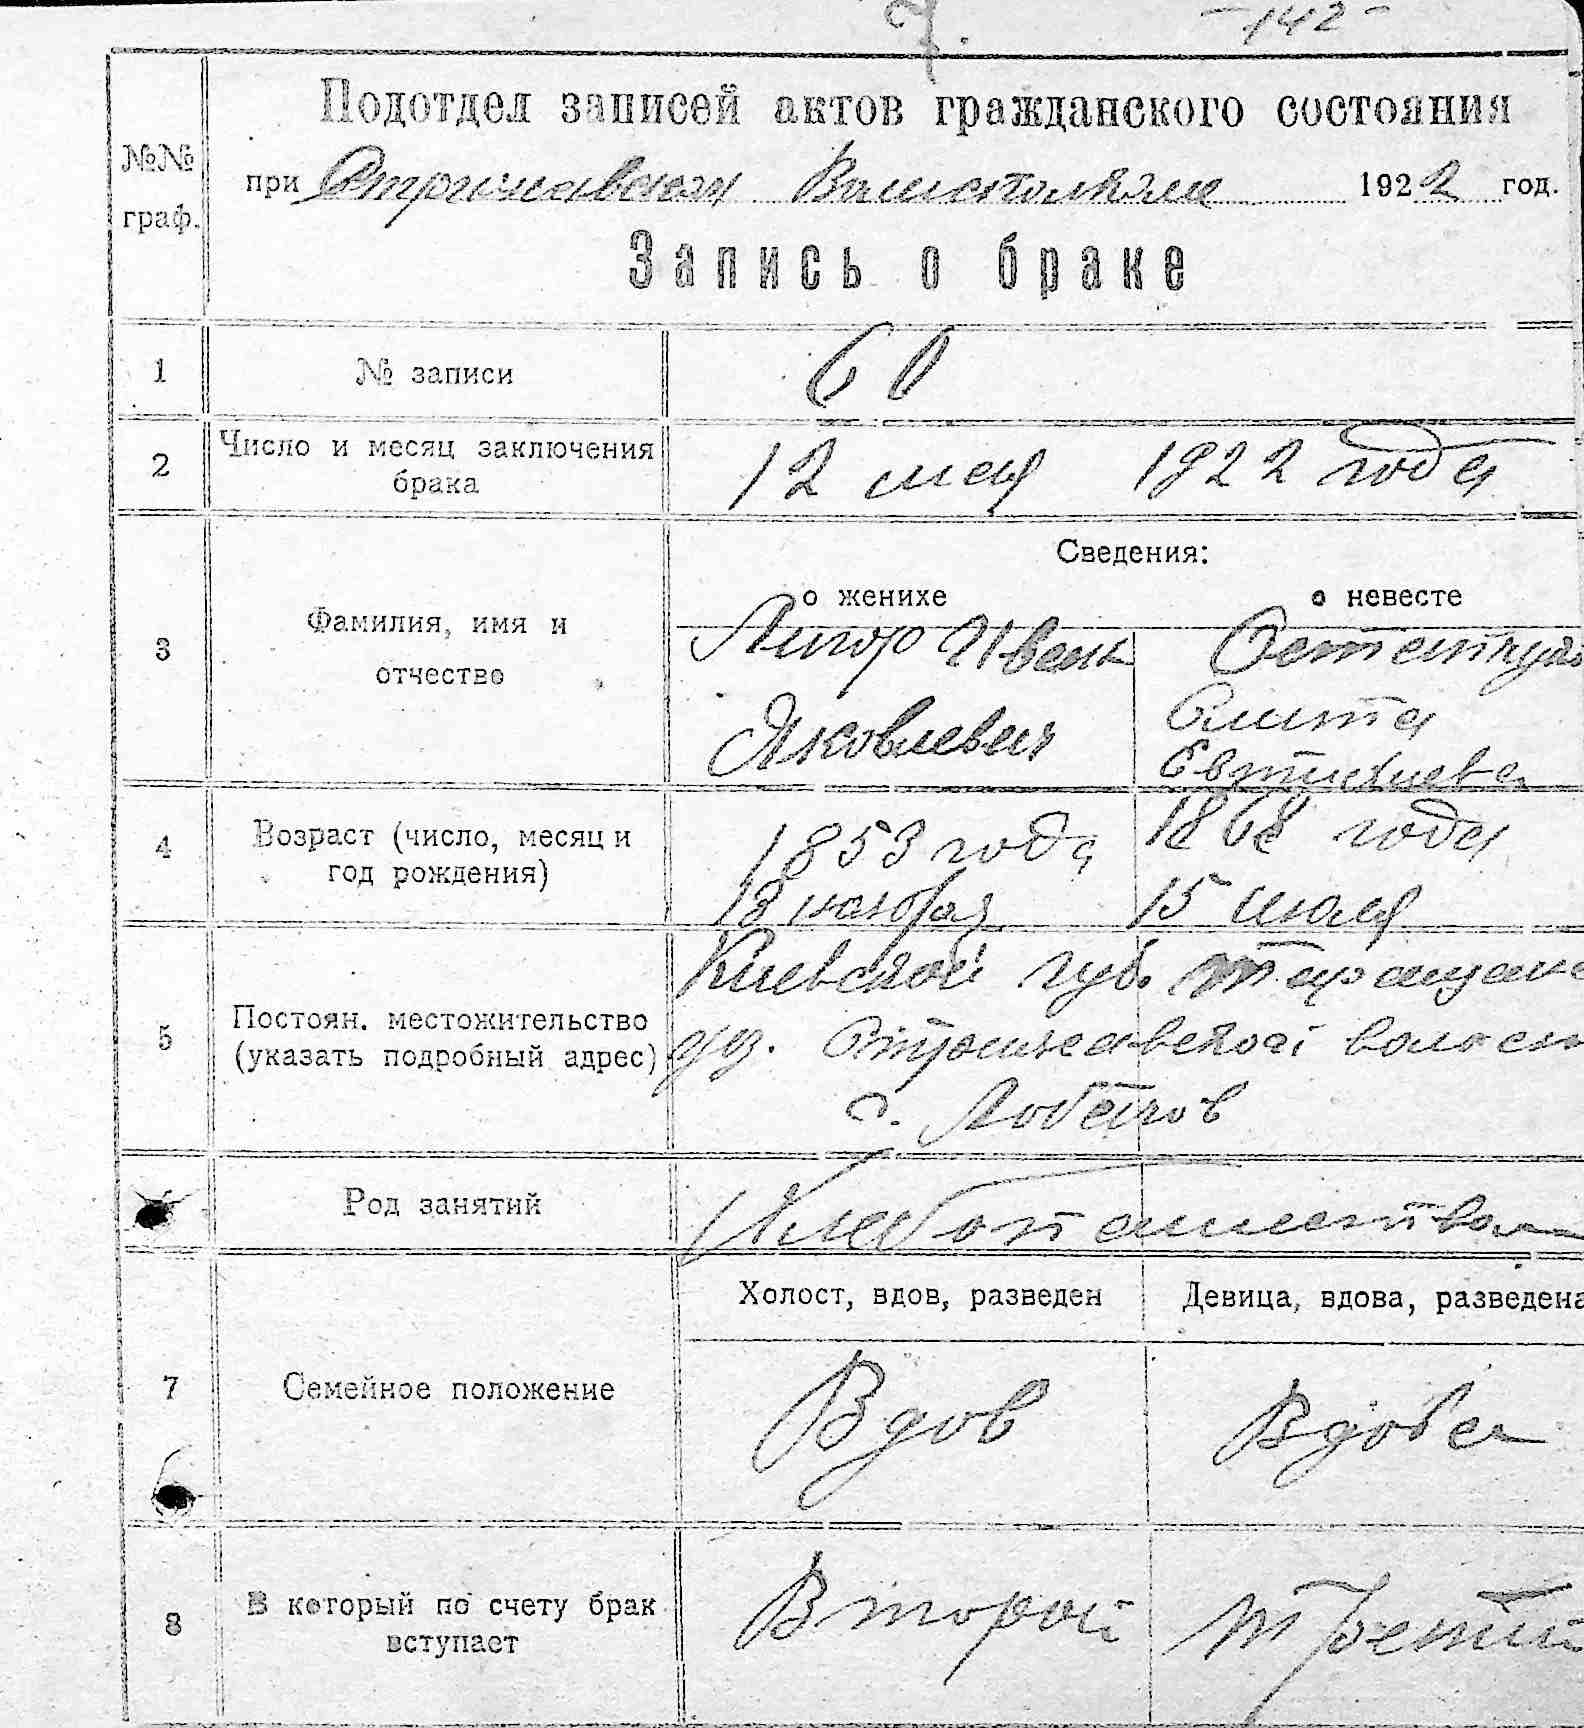 7.
-142-
Подотдел записей актов гражданского состояния
№№ граф.
при Стрижавском Волисполкоме 1922 год.
Запись о браке
1 № записи 60
2 Число и месяц заключения брака
12 мая 1922 года
Сведения:
о женихе о невесте
3 Фамилия, имя и отчество
Иван
Яковлевич
Евтихиева
4 Возраст (число, месяц и год рождения)
1853 года 1868 года
18 ноября 15 июля
5 Постоян. местожительство (указать подробный адрес)
Киевской губ. Таращанс
волост
с.
Род занятий Хлебопашество
Холост, вдов, разведен Девица, вдова, разведена
7 Семейное положение
Вдов Вдова
8 В который по счету брак вступает
Второй Третий